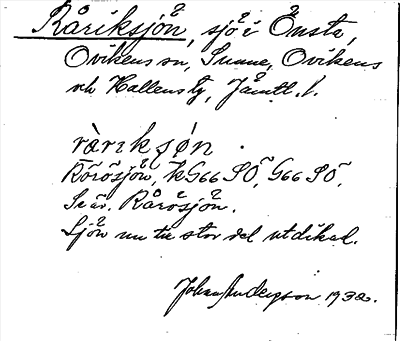 Råriksjön, sjö i Önsta,
Ovikens sn, Sunne, Ovikens
och Hallens tg, Jämtl. l.
ràriksǿn.
Rörösjön, k G66 SÖ, G66 SÖ,
Se äv. Rårösjön.
Sjön nu till stor del utdikad.
Johan Anderson 1932.